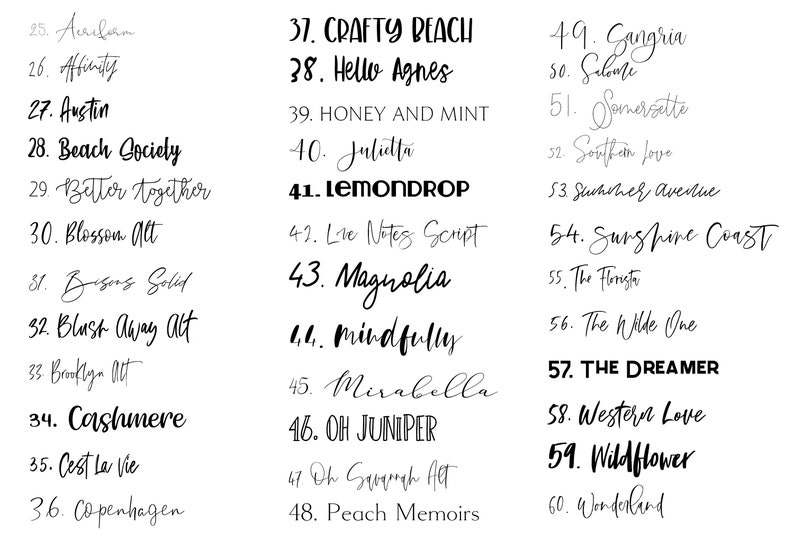 25. Acriform
26. Affinity
27. Austin
28. Beach Society
29. Better together
30. Blossom Alt
31. Bisous Solid
32. Blush Away Alt
33. Brooklyn Alt
34. Cashmere
35. Cest La Vie
36. Copenhagen
37. CRAFTY BEACH
38. Hello Agnes
39. HONEY AND MINT
40. Julietta
41. LEMONDROP
42. Love Notes Script
43. Magnolia
44. Mindfully
45. Mirabella
46. OH JUNIPER
47 Oh Savannah Alt
48. Peach Memoirs
49. Sangria
50. Salome
51. Somersette
52. Southern Love
53. Summer avenue
54. Sunshine Coast
55. The Florista
56. The Wilde One
57. THE DREAMER
58. Western Love
59. Wildflower
60. Wonderland